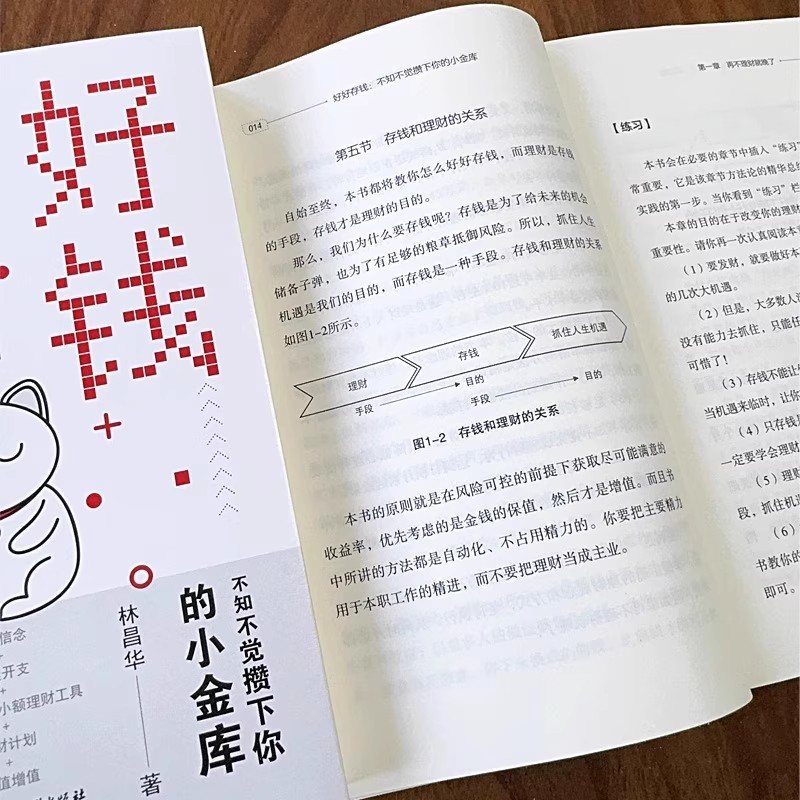 好
钱
不知不觉攒下你
的小金库
林昌华
著
信念
开支
+
小额理财工具
+
财计划
+
值增值
014
好好存钱:不知不觉攒下你的小金库
第五节 存钱和理财的关系
自始至终,本书都将教你怎么好好存钱,而理财是存钱
的手段,存钱才是理财的目的。
那么,我们为什么要存钱呢?存钱是为了给未来的机会
储备子弹,也为了有足够的粮草抵御风险。所以,抓住人生
机遇是我们的目的,而存钱是一种手段。存钱和理财的关系
如图1-2所示。
理财
存钱
抓住人生机遇
手段
目的
手段
目的
图1-2 存钱和理财的关系
本书的原则就是在风险可控的前提下获取尽可能满意的
收益率,优先考虑的是金钱的保值,然后才是增值。而且书
中所讲的方法都是自动化、不占用精力的。你要把主要精力
用于本职工作的精进,而不要把理财当成主业。
第一章 再不理财就晚了
【练习】
本书会在必要的章节中插入“练习”
常重要,它是该章节方法论的精华总结
实践的第一步。当你看到“练习”栏
本章的目的在于改变你的理财
重要性。请你再一次认真阅读本
(1)要发财,就要做好本
的几次大机遇。
(2)但是,大多数人
没有能力去抓住,只能任
可惜了!
(3)存钱不能让
当机遇来临时,让你
(4)只存钱
一定要学会理财
(5)理财
段,抓住机
(6)
书教你的
即可。